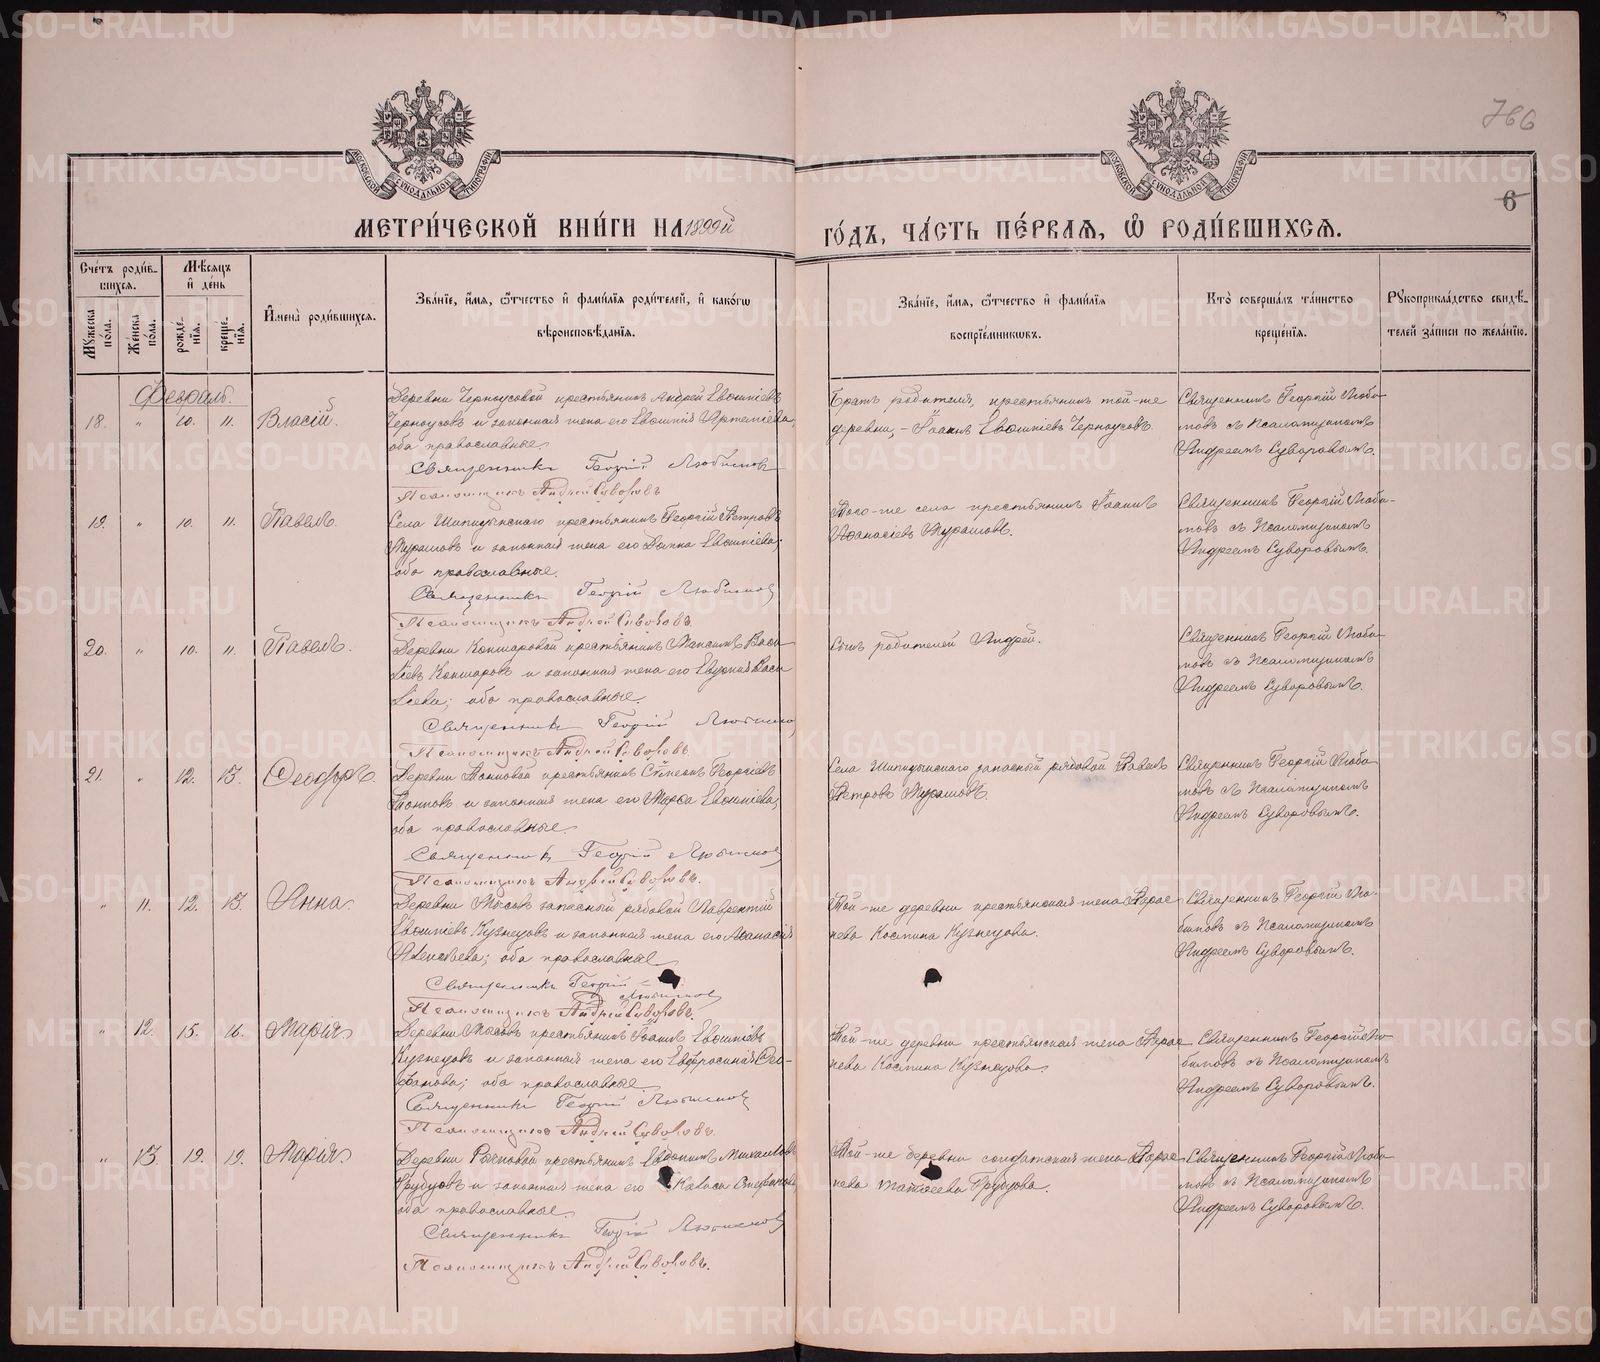 766
6
МОСКОВСКОЙ СѴНОДАЛЬНОЙ ТИПОГРАФІИ
МОСКОВСКОЙ СѴНОДАЛЬНОЙ ТИПОГРАФІИ
МЕТРИ́ЧЕСКОЙ КНИ́ГИ НА 1899й ГО́ДЪ, ЧА́СТЬ ПЕ́РВАЯ, Ѡ РОДИ́ВШИХСЯ.
Сче́тъ роди́в-
шихся.
Му́жеска по́ла.
Же́нска по́ла.
Мѣ́сяцъ и де́нь
рожде́-нія.
креще́-нія.
Имена̀ роди́вшихся.
Зва́ніе, и́мя, ѻ҆́тчество и фами́лія роди́телей, и како́гѡ
вѣроисповѣ́данія.
Зва́ніе, и́мя, ѻ҆́тчество и фами́лія
воспріе́мниковъ.
Кто̀ соверша́лъ та́инство
креще́нія.
Рукоприкла́дство свидѣ́-
телей за́писи по жела́нію.
Февраль.
18. " 10. 11. Власій.
Деревни Черноусовой крестьянинъ Андрей Евѳиміевъ
Черноусовъ и законная жена его Евѳимія Артеміева,
оба православные.
Священникъ Георгій Любимовъ
Псаломщикъ Андрей Суворовъ
Братъ родителя, крестьянинъ той-же
деревни, - Іоаннъ Евѳиміевъ Черноусовъ
Священникъ Георгій Люби-
мовъ съ Псаломщикомъ
Андреемъ Суворовымъ.
19. " 10. 11. Павелъ.
Села крестьянинъ Георгій Петровъ
Мурашовъ и законная жена его Евѳиміева,
оба православные.
Священникъ Георгій Любимовъ
Псаломщикъ Андрей Суворовъ.
Того-же села крестьянинъ Іоаннъ
Аѳанасіевъ Мурашовъ.
Священникъ Георгій Люби-
мовъ съ Псаломщикомъ
Андреемъ Суворовымъ.
20. " 10. 11. Павелъ.
Деревни крестьянинъ Максимъ Васи-
ліевъ и законная жена его Васи-
ліева; оба православные.
Священникъ Георгій Любимовъ
Псаломщикъ Андрей Суворовъ.
Сынъ родителей Андрей.
Священникъ Георгій Люби-
мовъ съ Псаломщикомъ
Андреемъ Суворовымъ.
21. " 12. 13. Ѳеодоръ.
Деревни крестьянинъ Стефанъ Георгіевъ
и законная жена его Марѳа Евѳиміева,
оба православные
Священникъ Георгій Любимовъ
Псаломщикъ Андрей Суворовъ.
Села запасный рядовой Павелъ
Петровъ Мурашовъ.
Священникъ Георгій Люби-
мовъ съ Псаломщикомъ
Андреемъ Суворовымъ.
" 11. 12. 13. Анна
Деревни Мысовъ запасный рядовой Лаврентій
Евѳиміевъ Кузнецовъ и законная жена его Аѳанасія
Алексѣева; оба православные
Священникъ Георгій Любимовъ
Псаломщикъ Андрей Суворовъ.
Той-же деревни крестьянская жена Параске-
ева Космина Кузнецова.
Священникъ Георгій Лю-
бимовъ съ Псаломщикомъ
Андреемъ Суворовымъ.
" 12. 15. 16. Марія
Деревни Мысовъ крестьянинъ Іоаннъ Евѳиміевъ
Кузнецовъ и законная жена его Евфросинія
оба православные
Священникъ Георгій Любимовъ
Псаломщикъ Андрей Суворовъ.
Той-же деревни крестьянская жена
Космина Кузнецова
Священникъ Георгій Лю-
бимовъ съ Псаломщикомъ
Андреемъ Суворовымъ.
" 13. 19. 19. Марія
Деревни крестьянинъ Михаиловъ
и законная жена его
оба православные.
Священникъ Георгій Любимовъ
Псаломщикъ Андрей Суворовъ.
Той-же деревни солдатская жена
Священникъ Георгій Люби-
мовъ съ Псаломщикомъ
Андреемъ Суворовымъ.
METRIKI.GASO-URAL.RU